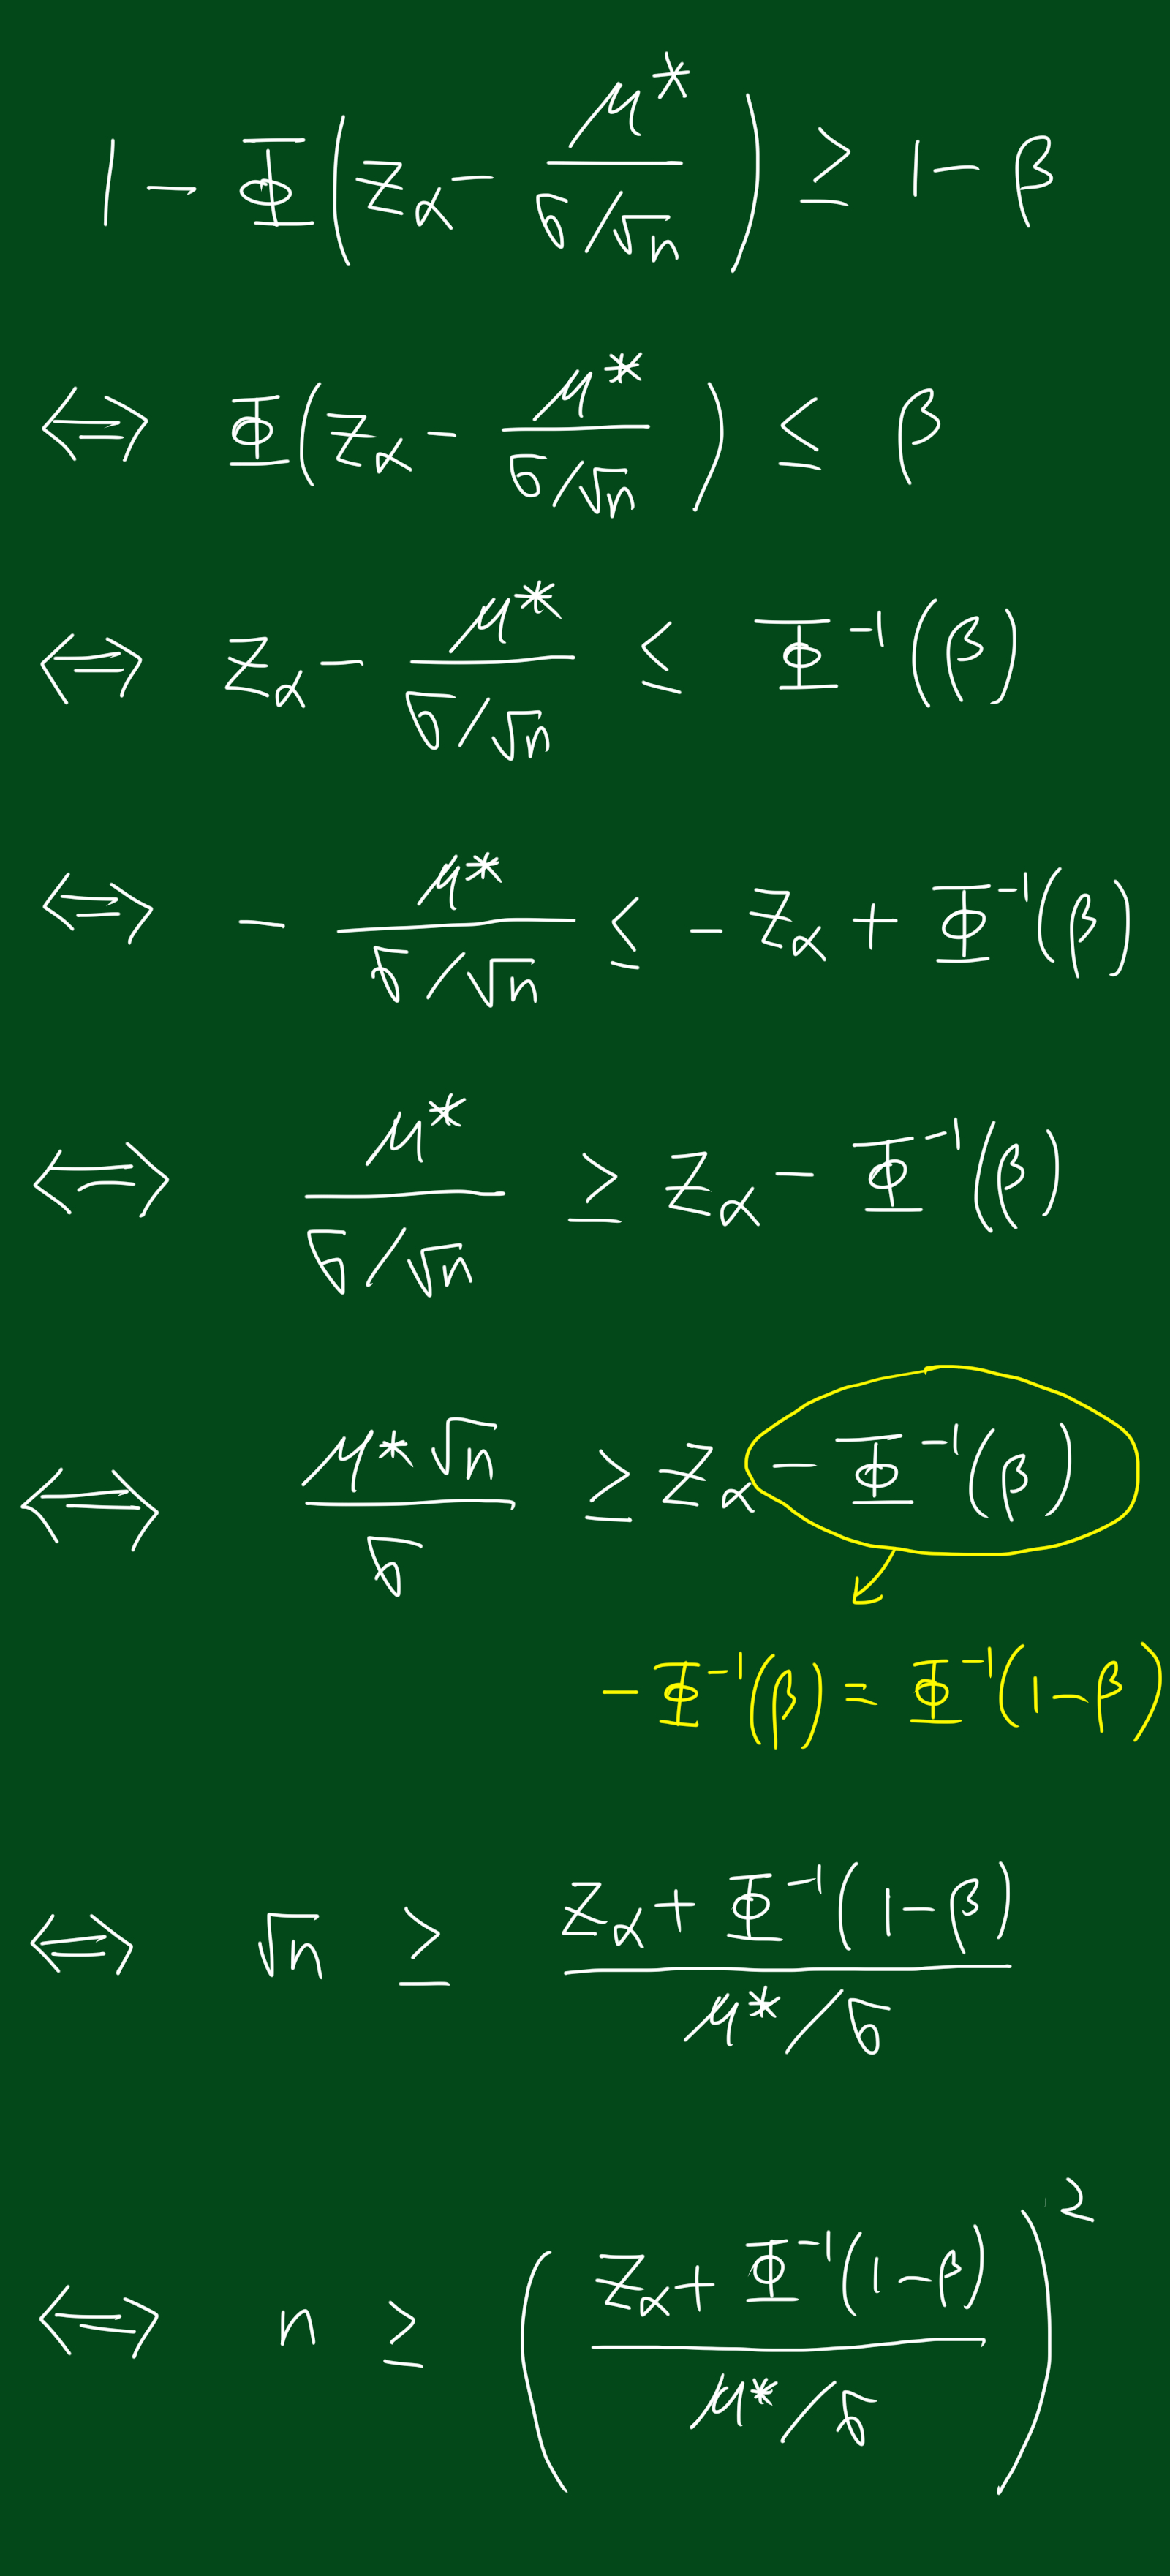 1 - Φ(z_α - μ*/(σ/√n)) ≥ 1 - β
⇔ Φ(z_α - μ*/(σ/√n)) ≤ β
⇔ z_α - μ*/(σ/√n) ≤ Φ⁻¹(β)
⇔ - μ*/(σ/√n) ≤ - z_α + Φ⁻¹(β)
⇔ μ*/(σ/√n) ≥ z_α - Φ⁻¹(β)
⇔ μ*√n/σ ≥ z_α - Φ⁻¹(β)
- Φ⁻¹(β) = Φ⁻¹(1-β)
⇔ √n ≥ (z_α + Φ⁻¹(1-β))/(μ*/σ)
⇔ n ≥ ((z_α + Φ⁻¹(1-β))/(μ*/σ))²